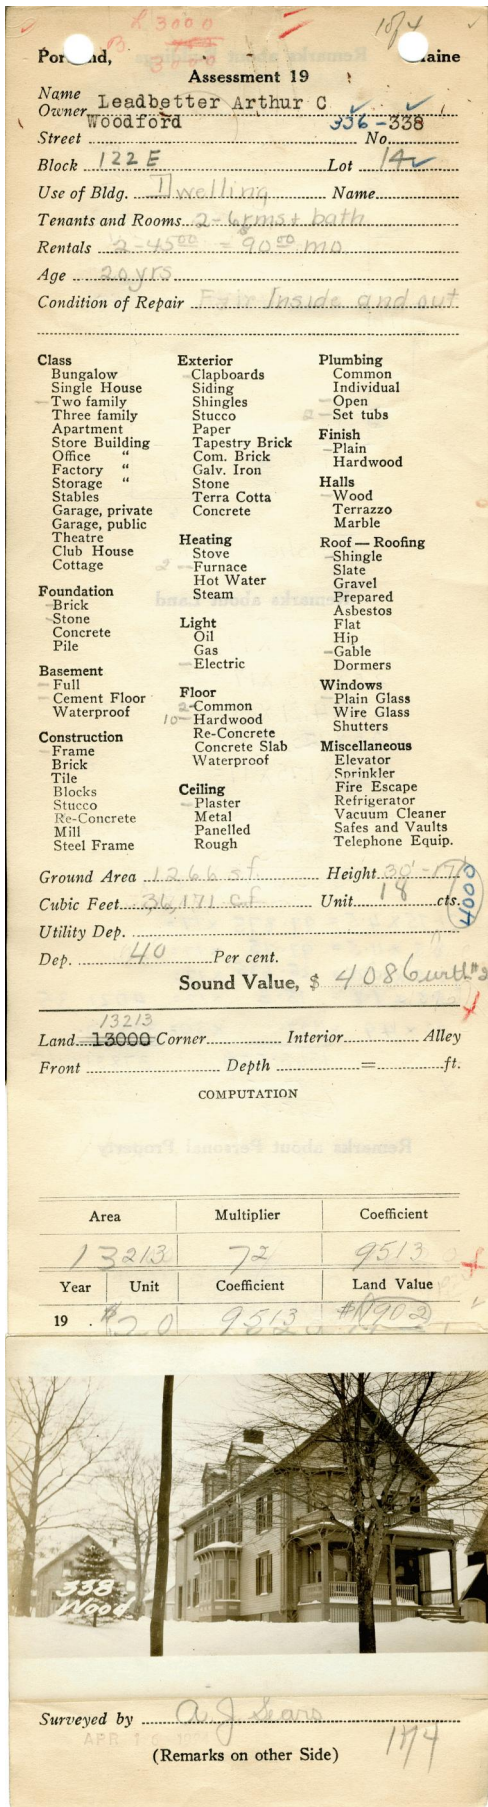 L 3000
10f4
B. 3000
Portland, Maine
Assessment 19
Name
Owner Leadbetter Arthur C
Street Woodford No. 336-338
Block 122 E Lot 14
Use of Bldg. Dwelling Name
Tenants and Rooms 2-6 rms + bath
Rentals 2-45 00 = 90 00 mo
Age 20 yrs
Condition of Repair Fair Inside and out
Class
Bungalow
Single House
- Two family
Three family
Apartment
Store Building
Office "
Factory "
Storage "
Stables
Garage, private
Garage, public
Theatre
Club House
Cottage
Foundation
- Brick
- Stone
Concrete
Pile
Basement
- Full
- Cement Floor
Waterproof
Construction
- Frame
Brick
Tile
Blocks
Stucco
Re-Concrete
Mill
Steel Frame
Exterior
- Clapboards
Siding
Shingles
Stucco
Paper
Tapestry Brick
Com. Brick
Galv. Iron
Stone
Terra Cotta
Concrete
Heating
Stove
2 - Furnace
Hot Water
Steam
Light
Oil
Gas
- Electric
Floor
2 - Common
10 - Hardwood
Re-Concrete
Concrete Slab
Waterproof
Ceiling
- Plaster
Metal
Panelled
Rough
Plumbing
Common
Individual
- Open
2 - Set tubs
Finish
- Plain
Hardwood
Halls
- Wood
Terrazzo
Marble
Roof — Roofing
- Shingle
Slate
Gravel
Prepared
Asbestos
Flat
Hip
- Gable
Dormers
Windows
- Plain Glass
Wire Glass
Shutters
Miscellaneous
Elevator
Sprinkler
Fire Escape
Refrigerator
Vacuum Cleaner
Safes and Vaults
Telephone Equip.
Ground Area 1266 sf Height 30'-17'
Cubic Feet 36,171 cf Unit 18 cts.
4000
Utility Dep.
Dep. 40 Per cent.
Sound Value, $ 4086
13213
Land 13000 Corner Interior Alley
Front Depth = ft.
COMPUTATION
Area Multiplier Coefficient
13213 72 9513
Year Unit Coefficient Land Value
19 . $20 9513 $1902
338
Wood
Surveyed by A J Sears
(Remarks on other Side)